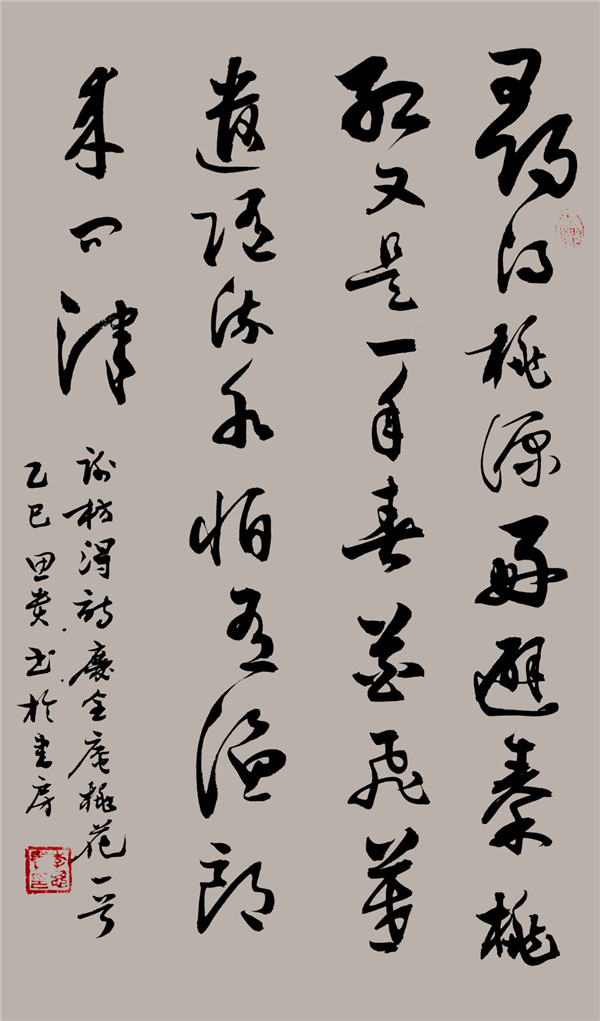 尋得桃源好避秦桃
红又是一年春花飛莫
遣随流水怕有漁郎
来问津
谢枋得詩慶全庵桃花一首
乙巳思贵书於書房